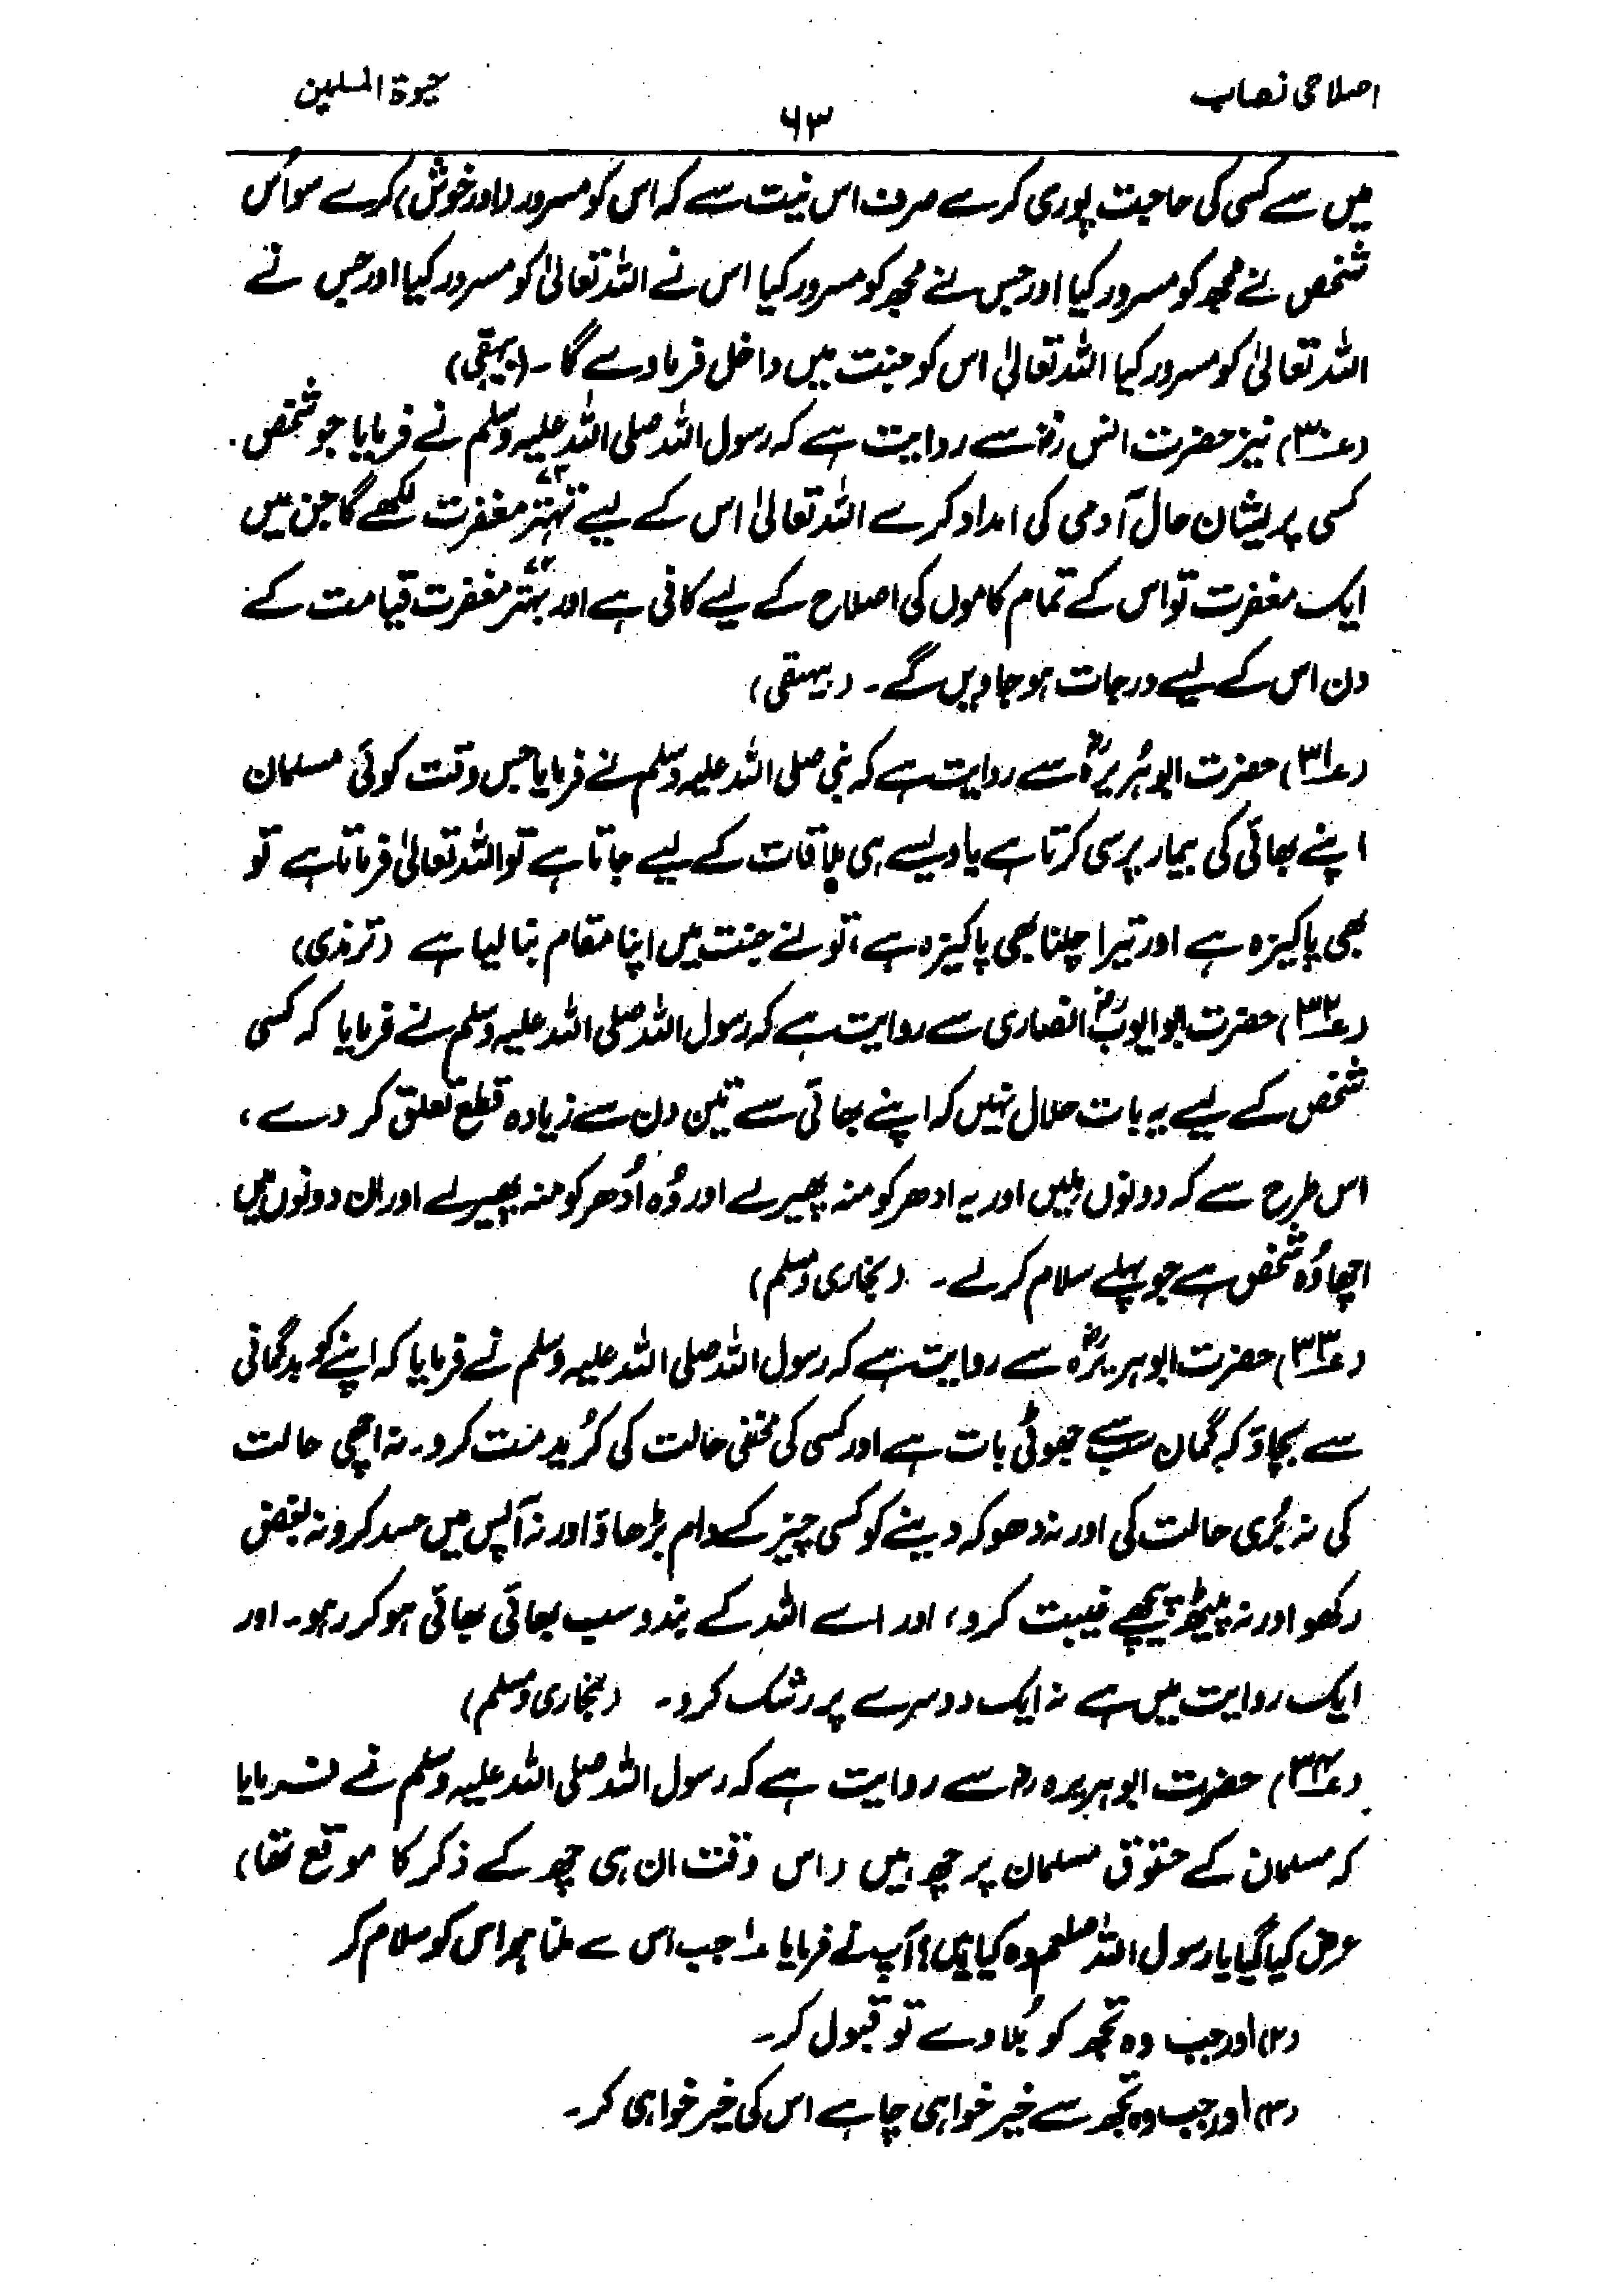 اصلاحی نصاب
۶۳
حیٰوۃ المسلمین
میں سے کسی کی حاجت پوری کرے صرف اس نیت سے کہ اس کو مسرور (اور خوش) کرے سو اُس
شخص نے مجھ کو مسرور کیا اور جس نے مجھ کو مسرور کیا اس نے اللہ تعالیٰ کو مسرور کیا اور جس نے
اللہ تعالیٰ کو مسرور کیا اللہ تعالیٰ اس کو جنت میں داخل فرما دے گا ۔ (بیہقی)
(ع۳۰) نیز حضرت انس رضؓ سے روایت ہے کہ رسول اللہ صلی اللہ علیہ وسلم نے فرمایا جو شخص
کسی پریشان حال آدمی کی امداد کرے اللہ تعالیٰ اس کے لیے تہتّر ۷۳ مغفرت لکھے گا جن میں
ایک مغفرت تو اس کے تمام کاموں کی اصلاح کے لیے کافی ہے اور بہتّر ۷۲ مغفرت قیامت کے
دن اس کے لیے درجات ہو جاویں گے ۔ (بیہقی)
(ع۳۱) حضرت ابوہُریرہؓ سے روایت ہے کہ نبی صلی اللہ علیہ وسلم نے فرمایا جس وقت کوئی مسلمان
اپنے بھائی کی بیمار پرسی کرتا ہے یا ویسے ہی ملاقات کے لیے جاتا ہے تو اللہ تعالیٰ فرماتا ہے تو
بھی پاکیزہ ہے اور تیرا چلنا بھی پاکیزہ ہے، تو نے جنت میں اپنا مقام بنا لیا ہے (ترمذی)
(ع۳۲) حضرت ابو ایوبؓ انصاری سے روایت ہے کہ رسول اللہ صلی اللہ علیہ وسلم نے فرمایا کہ کسی
شخص کے لیے یہ بات حلال نہیں کہ اپنے بھائی سے تین دن سے زیادہ قطع تعلق کر دے،
اس طرح سے کہ دونوں ملیں اور یہ ادھر کو منہ پھیر لے اور وُہ اُدھر کو منہ پھیر لے اور ان دونوں میں
اچھا وُہ شخص ہے جو پہلے سلام کر لے ۔ (بخاری و مسلم)
(ع۳۳) حضرت ابوہریرہؓ سے روایت ہے کہ رسول اللہ صلی اللہ علیہ وسلم نے فرمایا کہ اپنے کو بدگمانی
سے بچاؤ کہ گمان سب سے جھوٹی بات ہے اور کسی کی مخفی حالت کی کُرید مت کرو۔ نہ اچھی حالت
کی نہ بُری حالت کی اور نہ دھوکہ دینے کو کسی چیز کے دام بڑھاؤ اور نہ آپس میں حسد کرو نہ بغض
رکھو اور نہ پیٹھ پیچھے غیبت کرو، اور اے اللہ کے بندو سب بھائی بھائی ہو کر رہو۔ اور
ایک روایت میں ہے نہ ایک دوسرے پر رشک کرو۔ (بخاری و مسلم)
(ع۳۴) حضرت ابوہریرہ رضؓ سے روایت ہے کہ رسول اللہ صلی اللہ علیہ وسلم نے فرمایا
کہ مسلمان کے حقوق مسلمان پر چھ ہیں (اس وقت ان ہی چھ کے ذکر کا موقع تھا)
عرض کیا گیا یا رسول اللہ صلعم وہ کیا ہیں؟ آپ نے فرمایا ۱؎ جب اس سے ملنا ہو اس کو سلام کر
(۲) اور جب وہ تجھ کو بُلاوے تو قبول کر۔
(۳) اور جب وہ تجھ سے خیر خواہی چاہے اس کی خیر خواہی کر۔